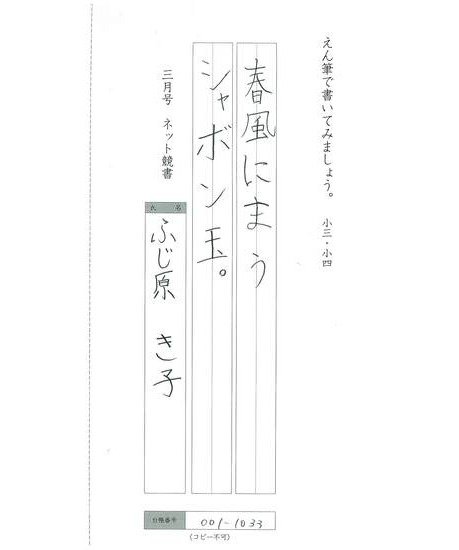 えん筆で書いてみましょう。 小三・小四
春風にまう
シャボン玉。
三月号 ネット競書
氏名
ふじ原 き子
台帳番号 001-1033
(コピー不可)